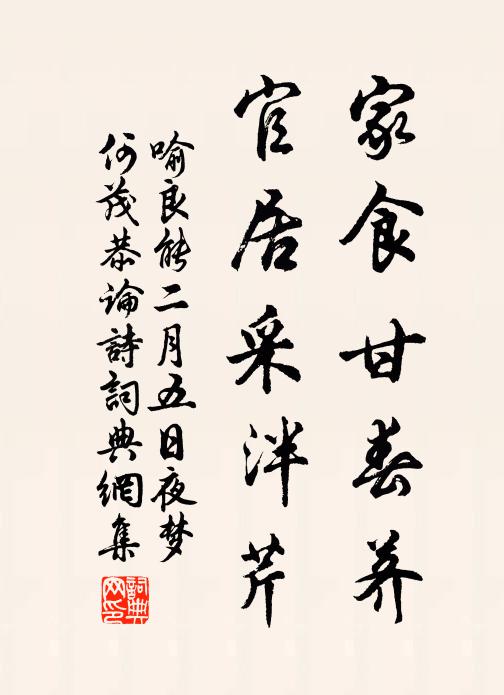 家食甘春荠
官居采泮芹
喻良能二月五日夜梦
何茂恭论詩詞典網集
詞典網印